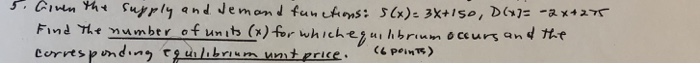 5. Given the supply and demand functions: S(x) = 3x+150, D(x) = -2x+275
Find the number of units (x) for which equilibrium occurs and the
corresponding equilibrium unit price. (6 points)